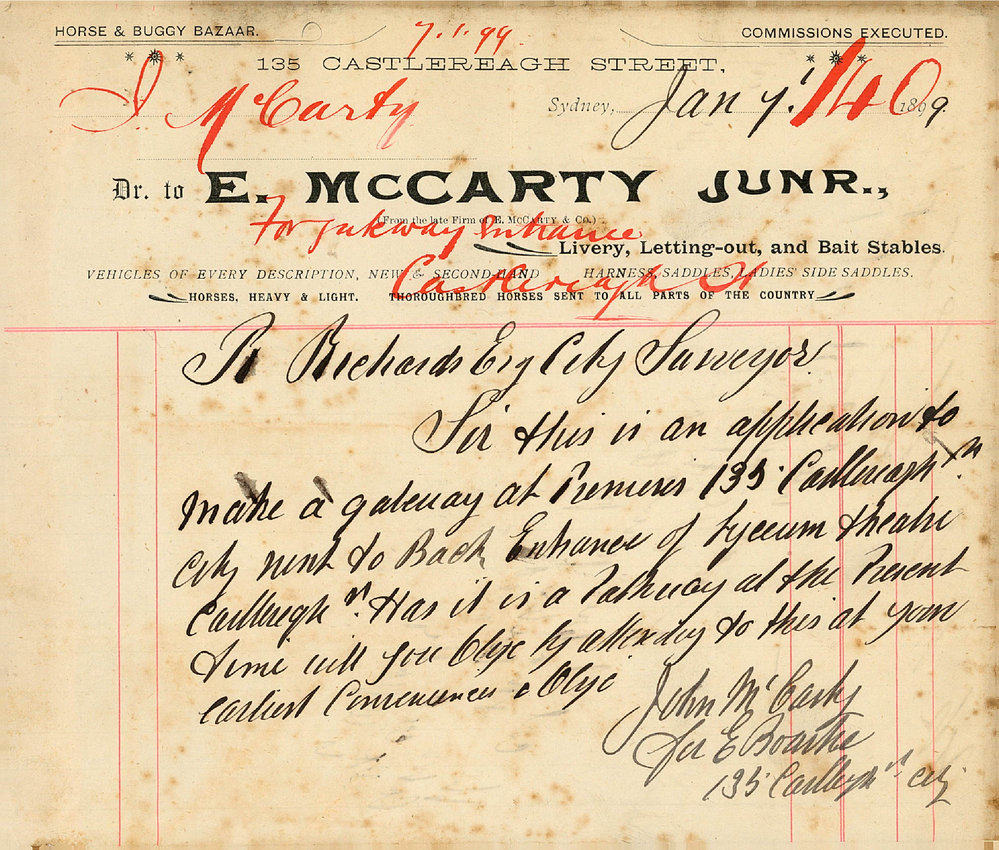 HORSE & BUGGY BAZAAR.
7.1.99
COMMISSIONS EXECUTED.
135 CASTLEREAGH STREET,
J. McCarty
Sydney, Jan 7. 1899.
140
Dr. to E. McCARTY JUNR.,
(From the late Firm of E. McCARTY & Co.)
For Entrance
Livery, Letting-out, and Bait Stables.
Castlereagh St
VEHICLES OF EVERY DESCRIPTION, NEW & SECOND-HAND HARNESS, SADDLES, LADIES' SIDE SADDLES.
HORSES, HEAVY & LIGHT. THOROUGHBRED HORSES SENT TO ALL PARTS OF THE COUNTRY
Richards Esq City Surveyor
Sir this is an application to
make a gateway at Premises 135 Castlereagh St
City next to Back Entrance of Lyceum theatre
Castlereagh St. Has it is a Pathway at the Present
time will you Oblige by attending to this at your
earliest Convenience & Oblige
John McCarty
for E Bourke
135 Castlereagh St City